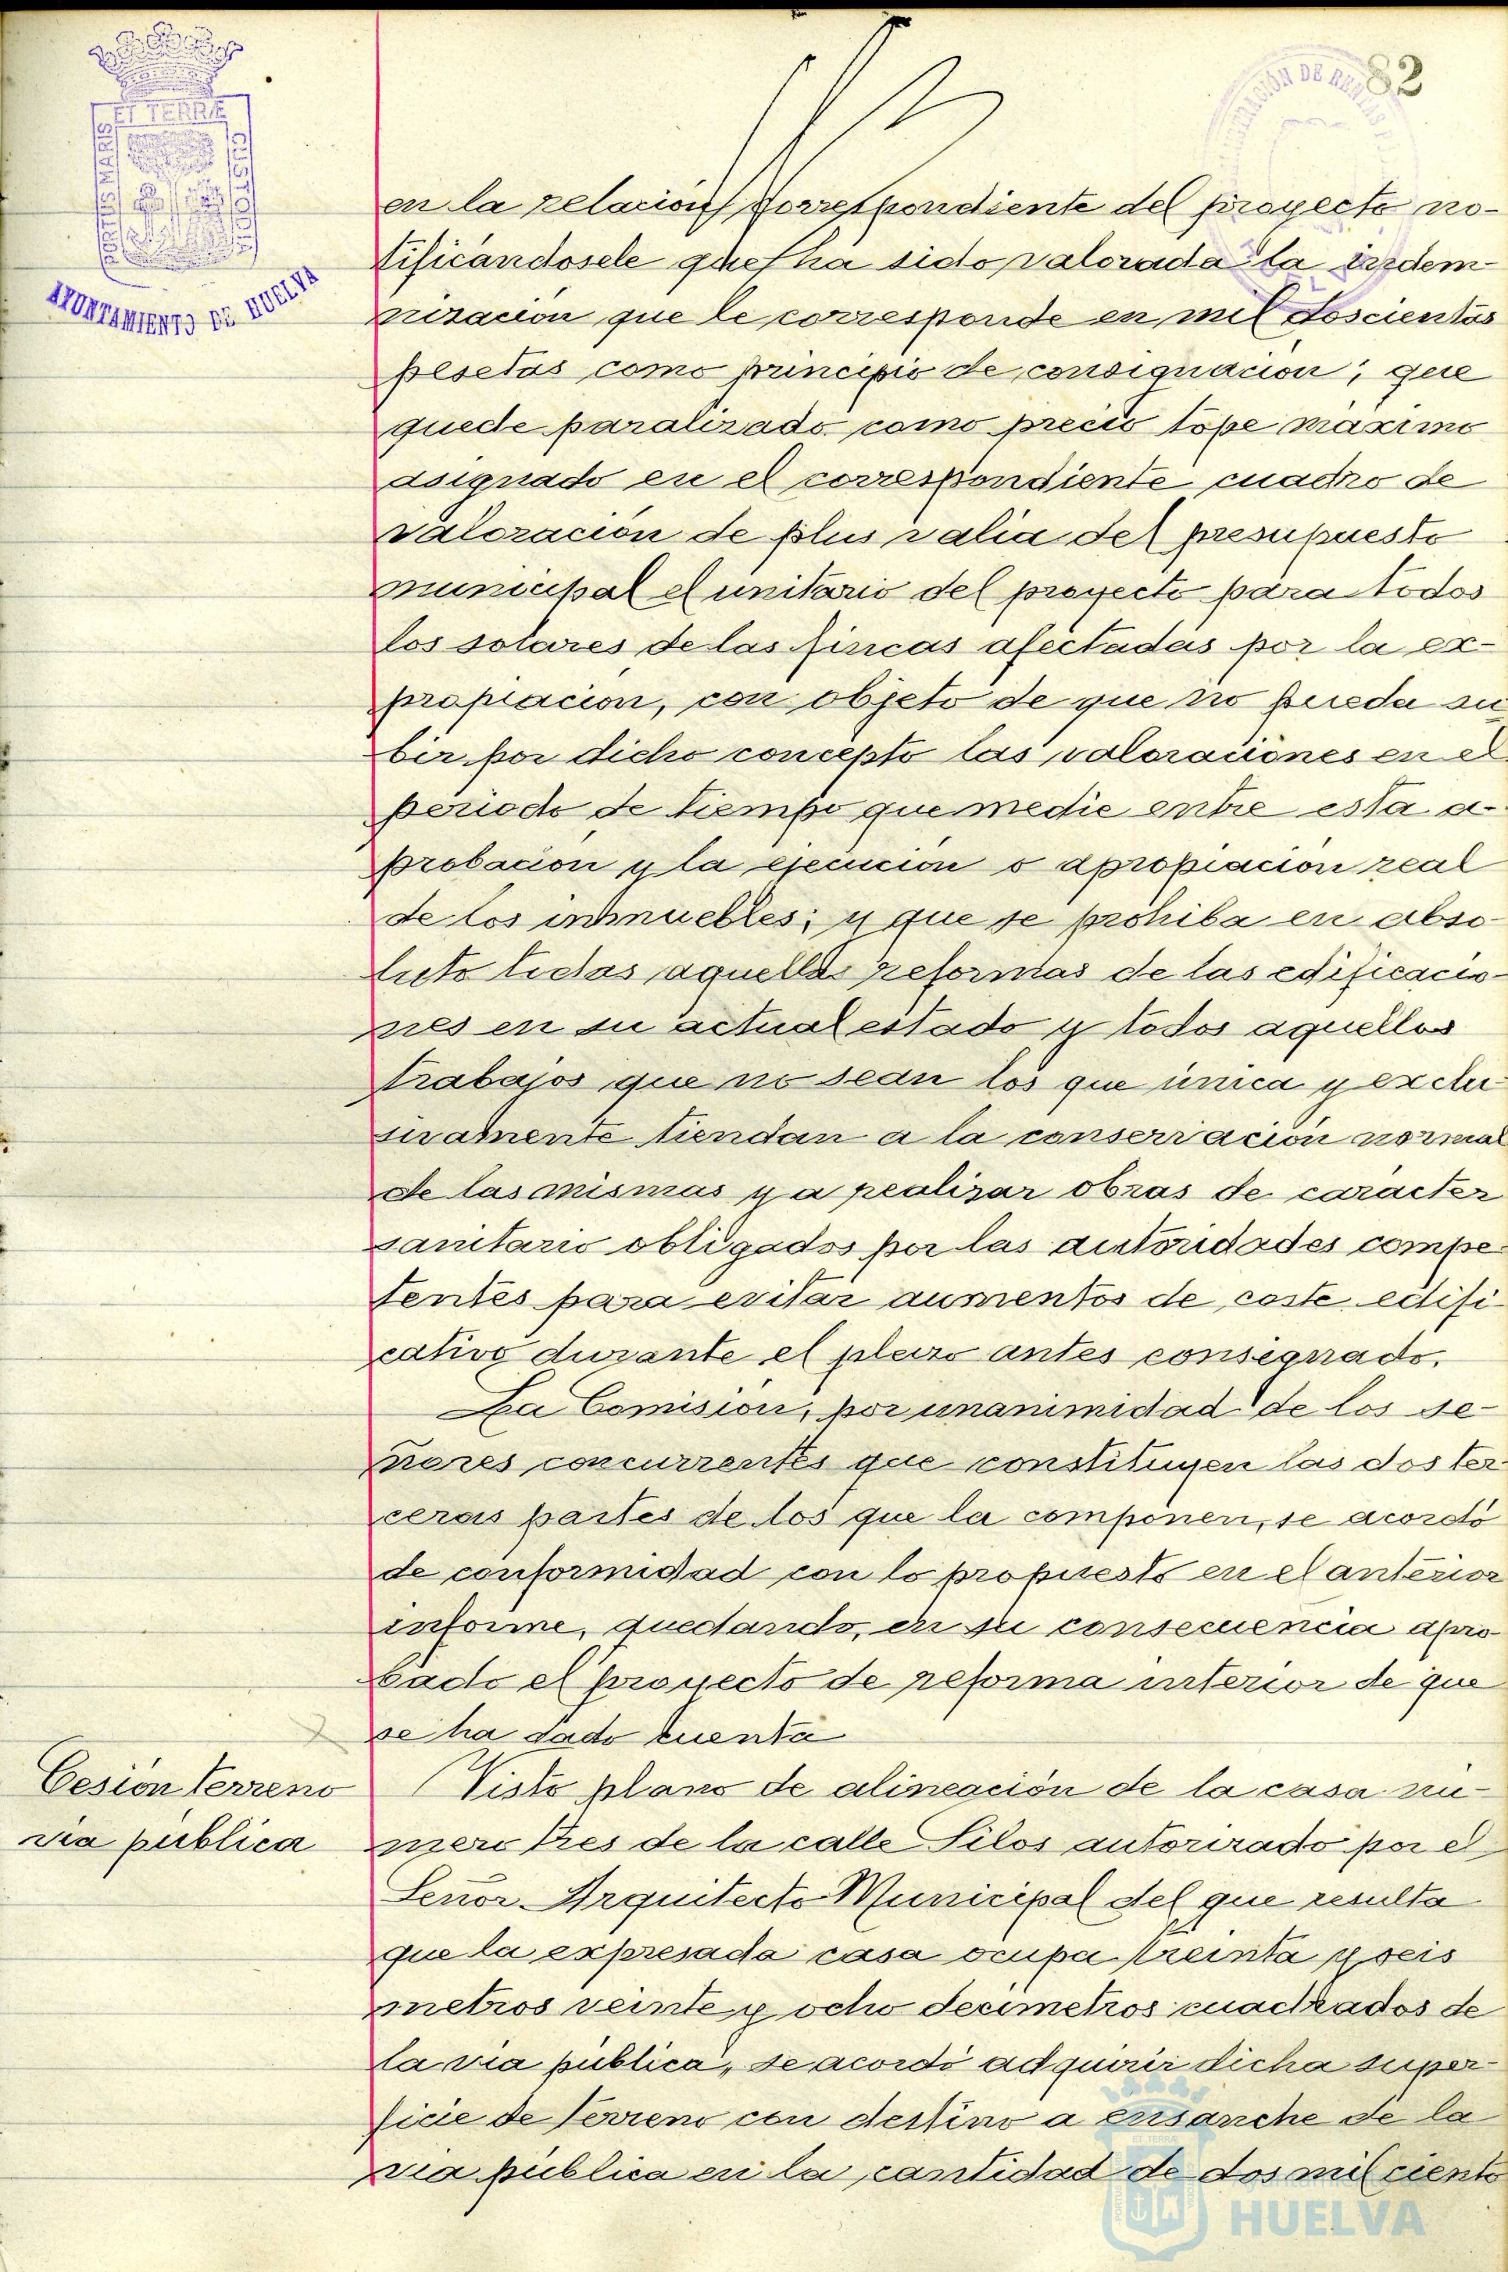 82
ET TERRÆ
PORTUS MARIS
CUSTODIA
AYUNTAMIENTO DE HUELVA
en la relación correspondiente del proyecto no-
tificándosele que ha sido valorada la indem-
nización que le corresponde en mil doscientas
pesetas como principio de consignación; que
quede paralizado como precio tope máximo
asignado en el correspondiente cuadro de
valoración de plus valia del presupuesto
municipal el unitario del proyecto para todos
los solares de las fincas afectadas por la ex-
propiacion, con objeto de que no pueda su
bir por dicho concepto las valoraciones en el
periodo de tiempo que medie entre esta a-
probación y la ejecucion o apropiacion real
de los inmuebles; y que se prohiba en abso-
luto todas aquellas reformas de las edificacio-
nes en su actual estado y todos aquellos
trabajos que no sean los que única y exclu-
sivamente tiendan a la conservación normal
de las mismas y a realizar obras de caracter
sanitario obligados por las autoridades compe-
tentes para evitar aumentos de coste edifi-
cativo durante el plazo antes consignado.
La Comisión, por unanimidad de los se-
ñores concurrentes que constituyen las dos ter-
ceras partes de los que la componen, se acordó
de conformidad con lo propuesto en el anterior
informe, quedando, en su consecuencia apro
bado el proyecto de reforma interior de que
se ha dado cuenta
Cesión terreno
via pública
Visto plano de alineación de la casa nú-
mero tres de la calle Silos autorizado por el
Señor Arquitecto Municipal del que resulta
que la expresada casa ocupa treinta y seis
metros veinte y ocho decimetros cuadrados de
la via pública, se acordó adquirir dicha super-
ficie de terreno con destino a ensanche de la
via pública en la cantidad de dos mil ciento
Ayuntamiento de
HUELVA